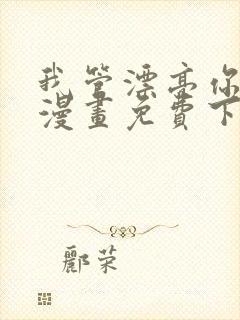 我管漂亮你
漫畫免費下
酈荣